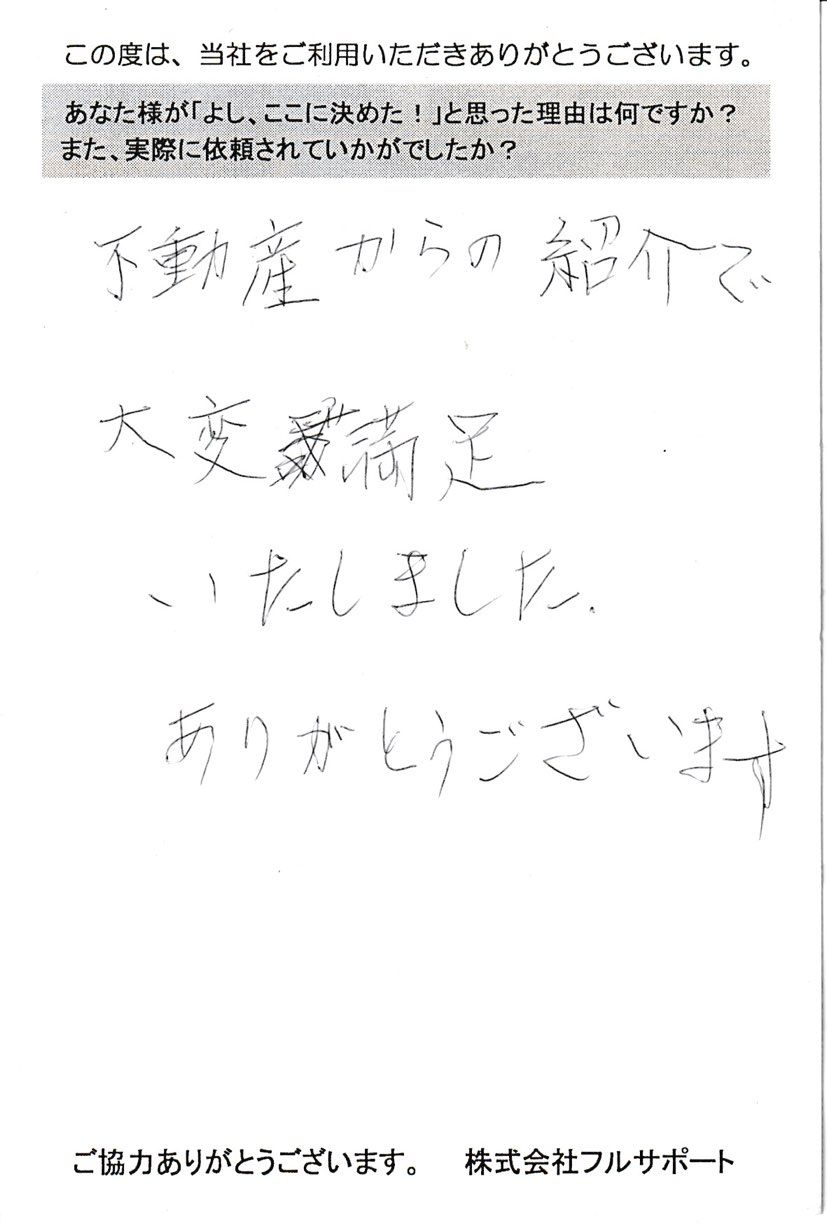 この度は、当社をご利用いただきありがとうございます。
あなた様が「よし、ここに決めた！」と思った理由は何ですか？
また、実際に依頼されていかがでしたか？
不動産からの紹介で
大変満足
いたしました.
ありがとうございます
ご協力ありがとうございます。　株式会社フルサポート